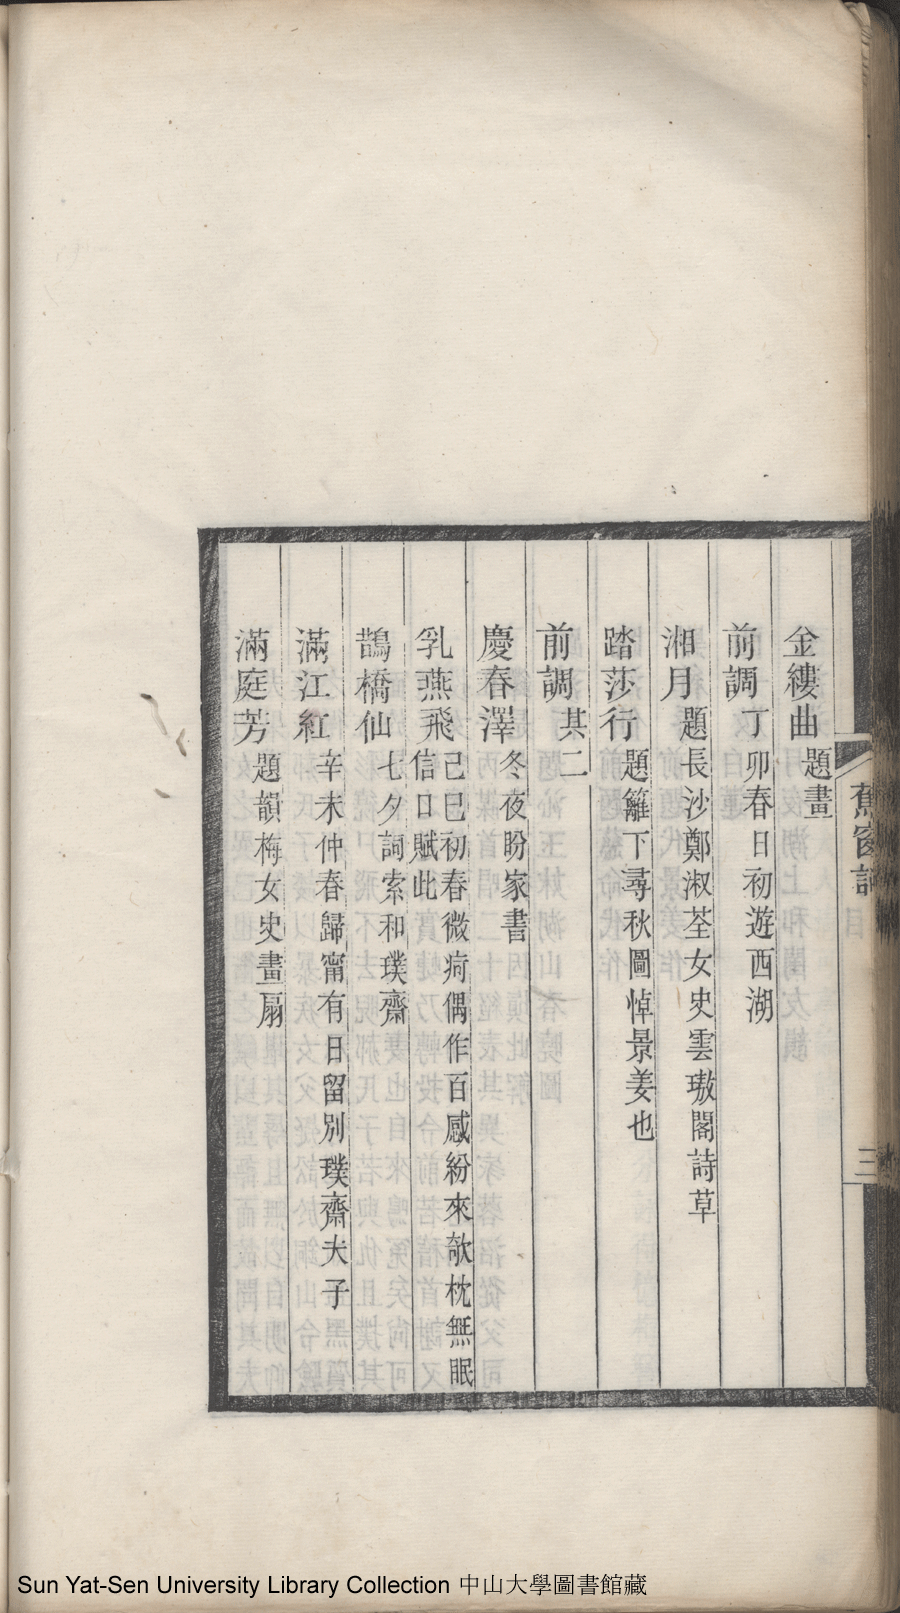 金縷曲 題畫
前調 丁卯春日初遊西湖
湘月 題長沙鄭淑荃女史雲璈閣詩草
踏莎行 題籬下尋秋圖悼景姜也
前調 其二
慶春澤 冬夜盼家書
乳燕飛 己巳初春微疴偶作百感紛來欹枕無眠
信口賦此
鵲橋仙 七夕詞索和璞齋
滿江紅 辛未仲春歸甯有日留別璞齋夫子
滿庭芳 題韻梅女史畫扇
窗詞
目
三
Sun Yat-Sen University Library Collection 中山大學圖書館藏